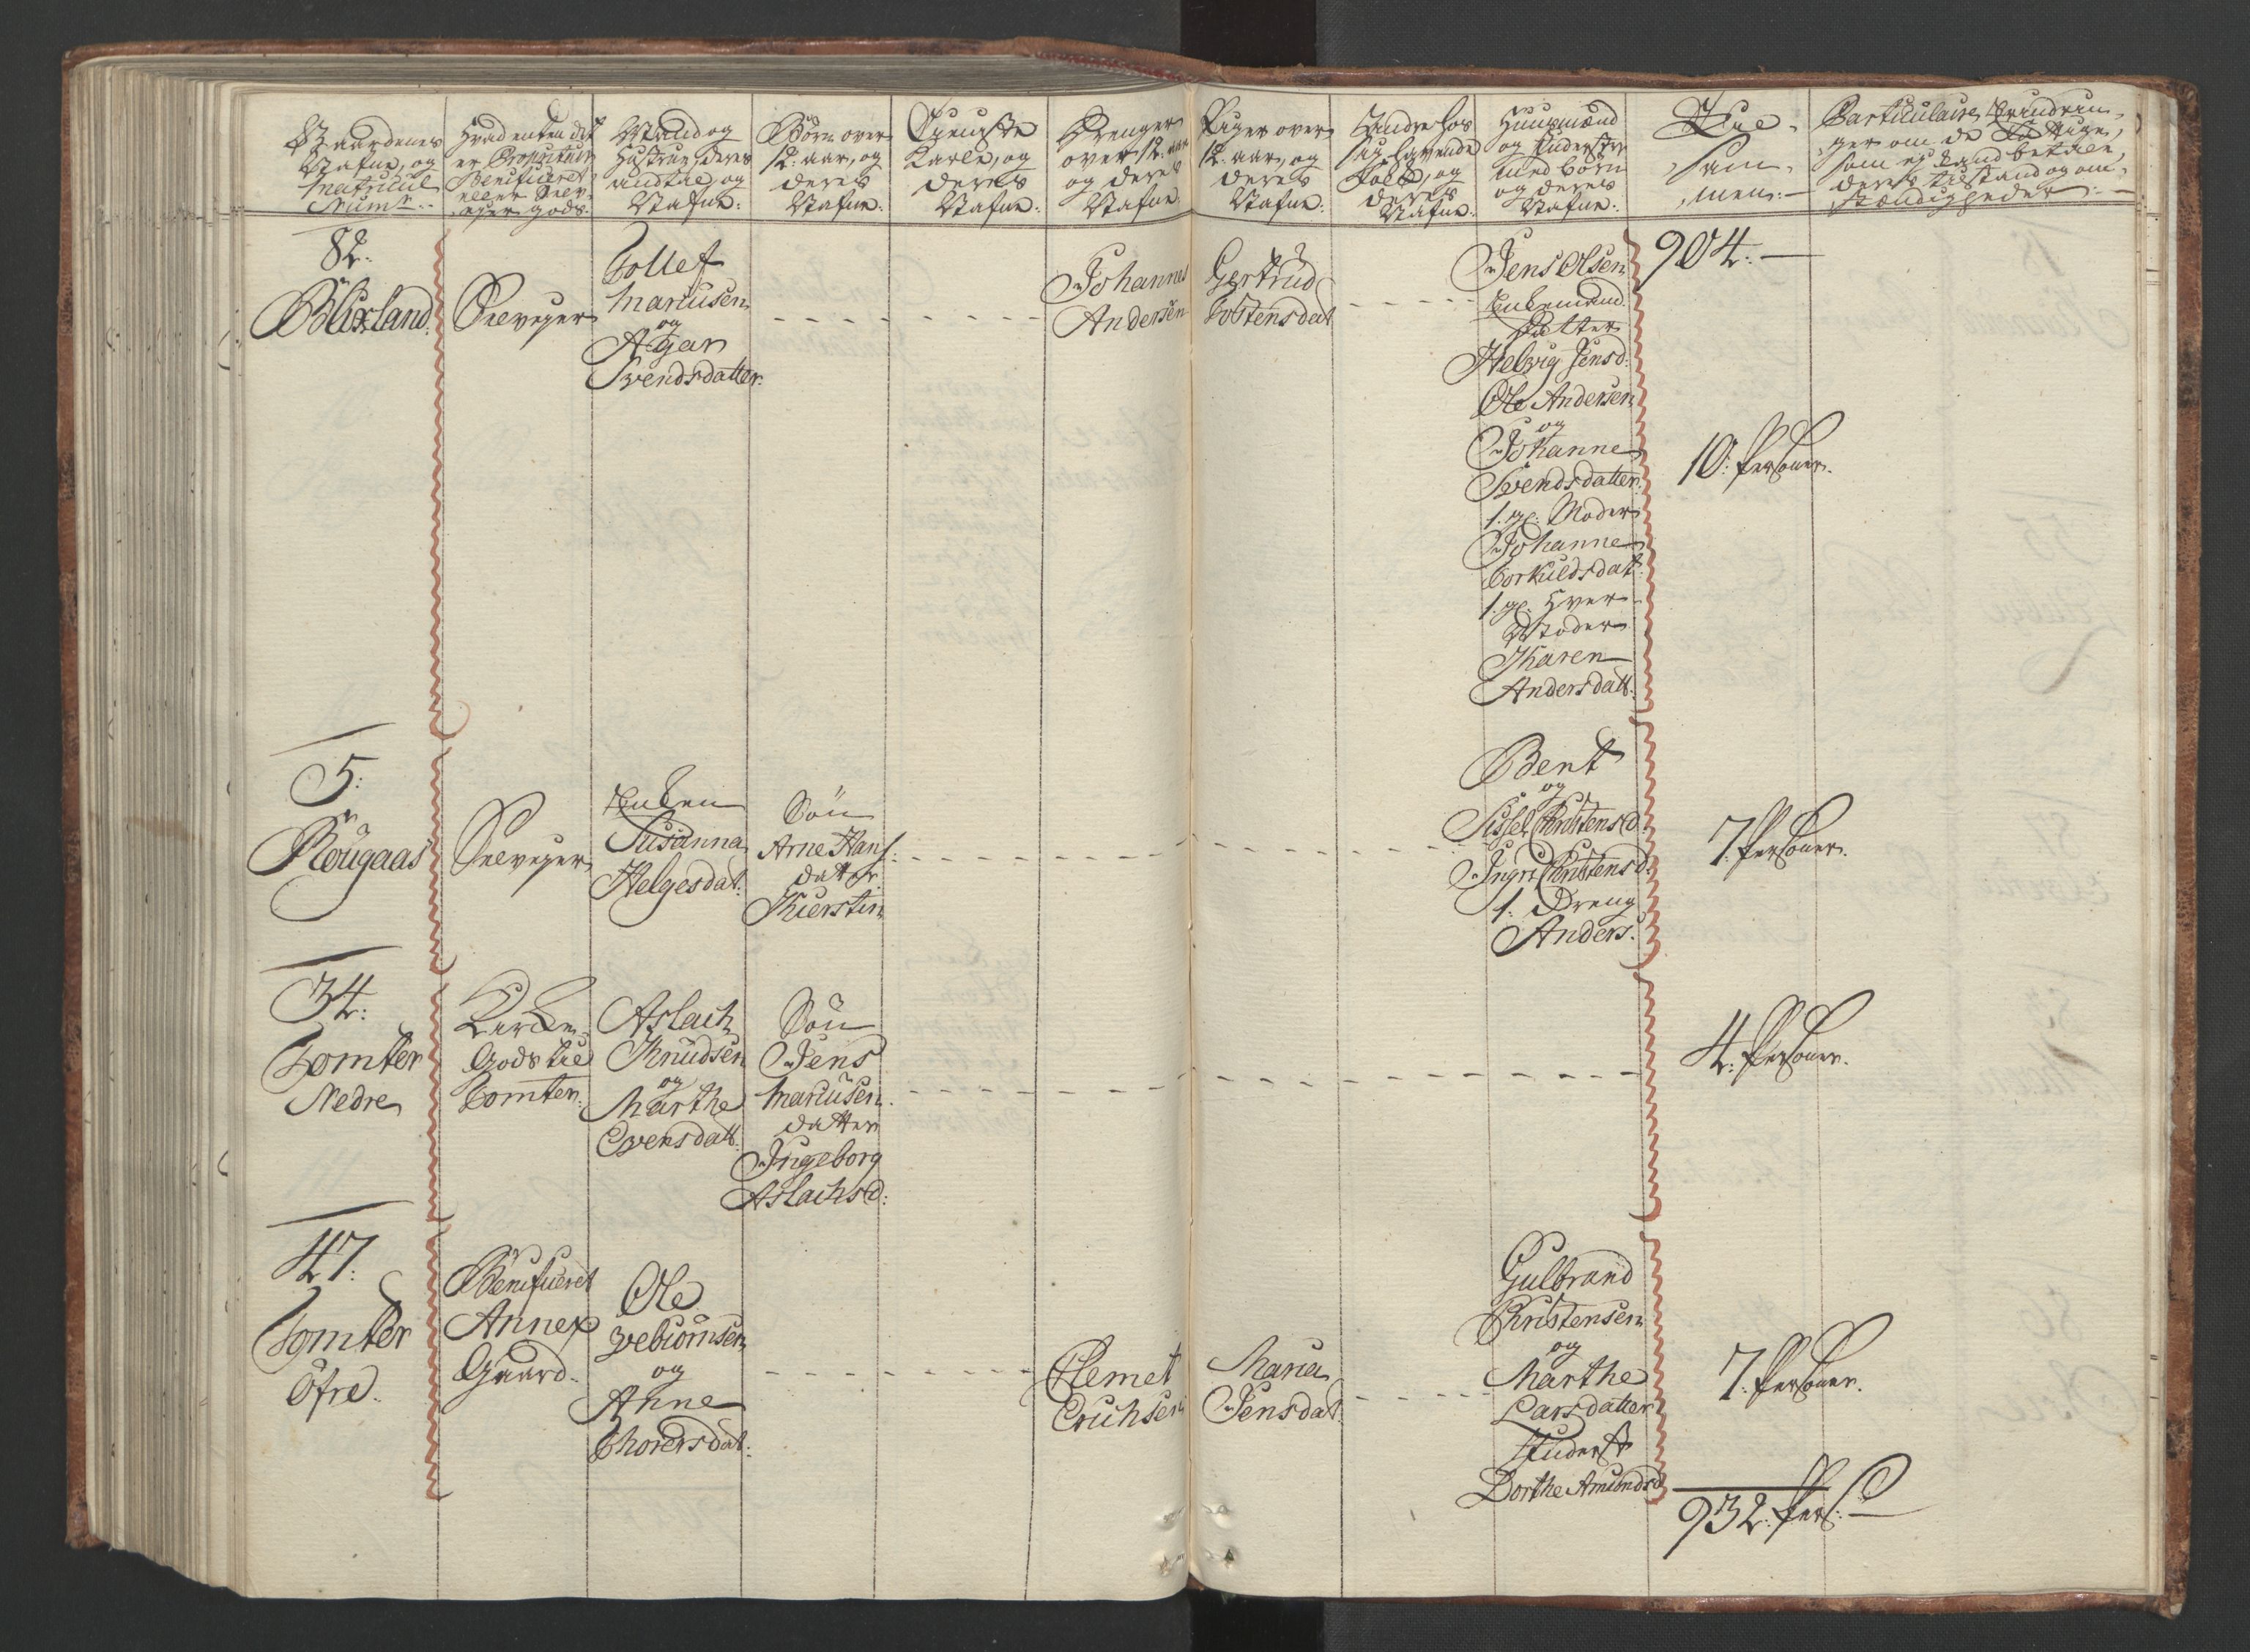 Gaardenes
Nafne, og
Matricul
Numr:
Hvad enten det
er Proprietair
Beneficeret
eller Selv-
ejer gods.
Mand og
Hustrue deres
andtal og
Nafne:
Børn over
12: aar, og
deres
Nafne:
Tieniste
Karle, og
deres
Nafne:
Drenger
over 12: aar
og deres
Nafne
Piger over
12: aar, og
deres
Nafne:
Andre hos
sig havende
Folk, og
deres
Nafne:
Huusmænd
og Inderster
med børn
og deres
Nafne:
Til-
sam-
men:
Particulaire Erindrin-
ger om de fattige,
som ej kand betale,
deres tilstand og om-
stændigheder:
82.
Blixland.
Selvejer
Tollef
Mariusen
og
Agar
Svendsdatter.
Johannes
Andersen
Gertrud
Tostensdat
Jens Olsen
Enkemand
Datter
Helvig Jensd:
Ole Andersen
og
Johanne
Svendsdatter.
1. gl: Moder
Johanne
Torkildsdat:
1. gl: Hver
Moder
Karen
Andersdatt.
904.
10: Personer.
5:
Rougaas
Selvejer
Enken
Susanna
Helgesdat:
Søn
Arne Hans:
datter
Kierstin
Bent
og
Sissel Christensd.
Ingri Christensd.
1. Dreng
Anders.
7. Personer.
34:
Tomter
Nedre
Kirke
Gods til
Tomter.
Aslach
Knudsen
og
Marthe
Evensdatt.
Søn
Jens
Mariusen.
datter
Ingeborg
Aslachsd:
4. Personer.
47:
Tomter
Öfre.
Beneficeret
Annex
Gaard.
Ole
Vebiørnsen
og
Anne
Thorersdat:
Clemet
Erichsen
Maria
Jensdat
Gulbrand
Christensen
og
Marthe
Larsdatter
Inderst
Dorthe Amundsd
7. Personer.
932. Pers: